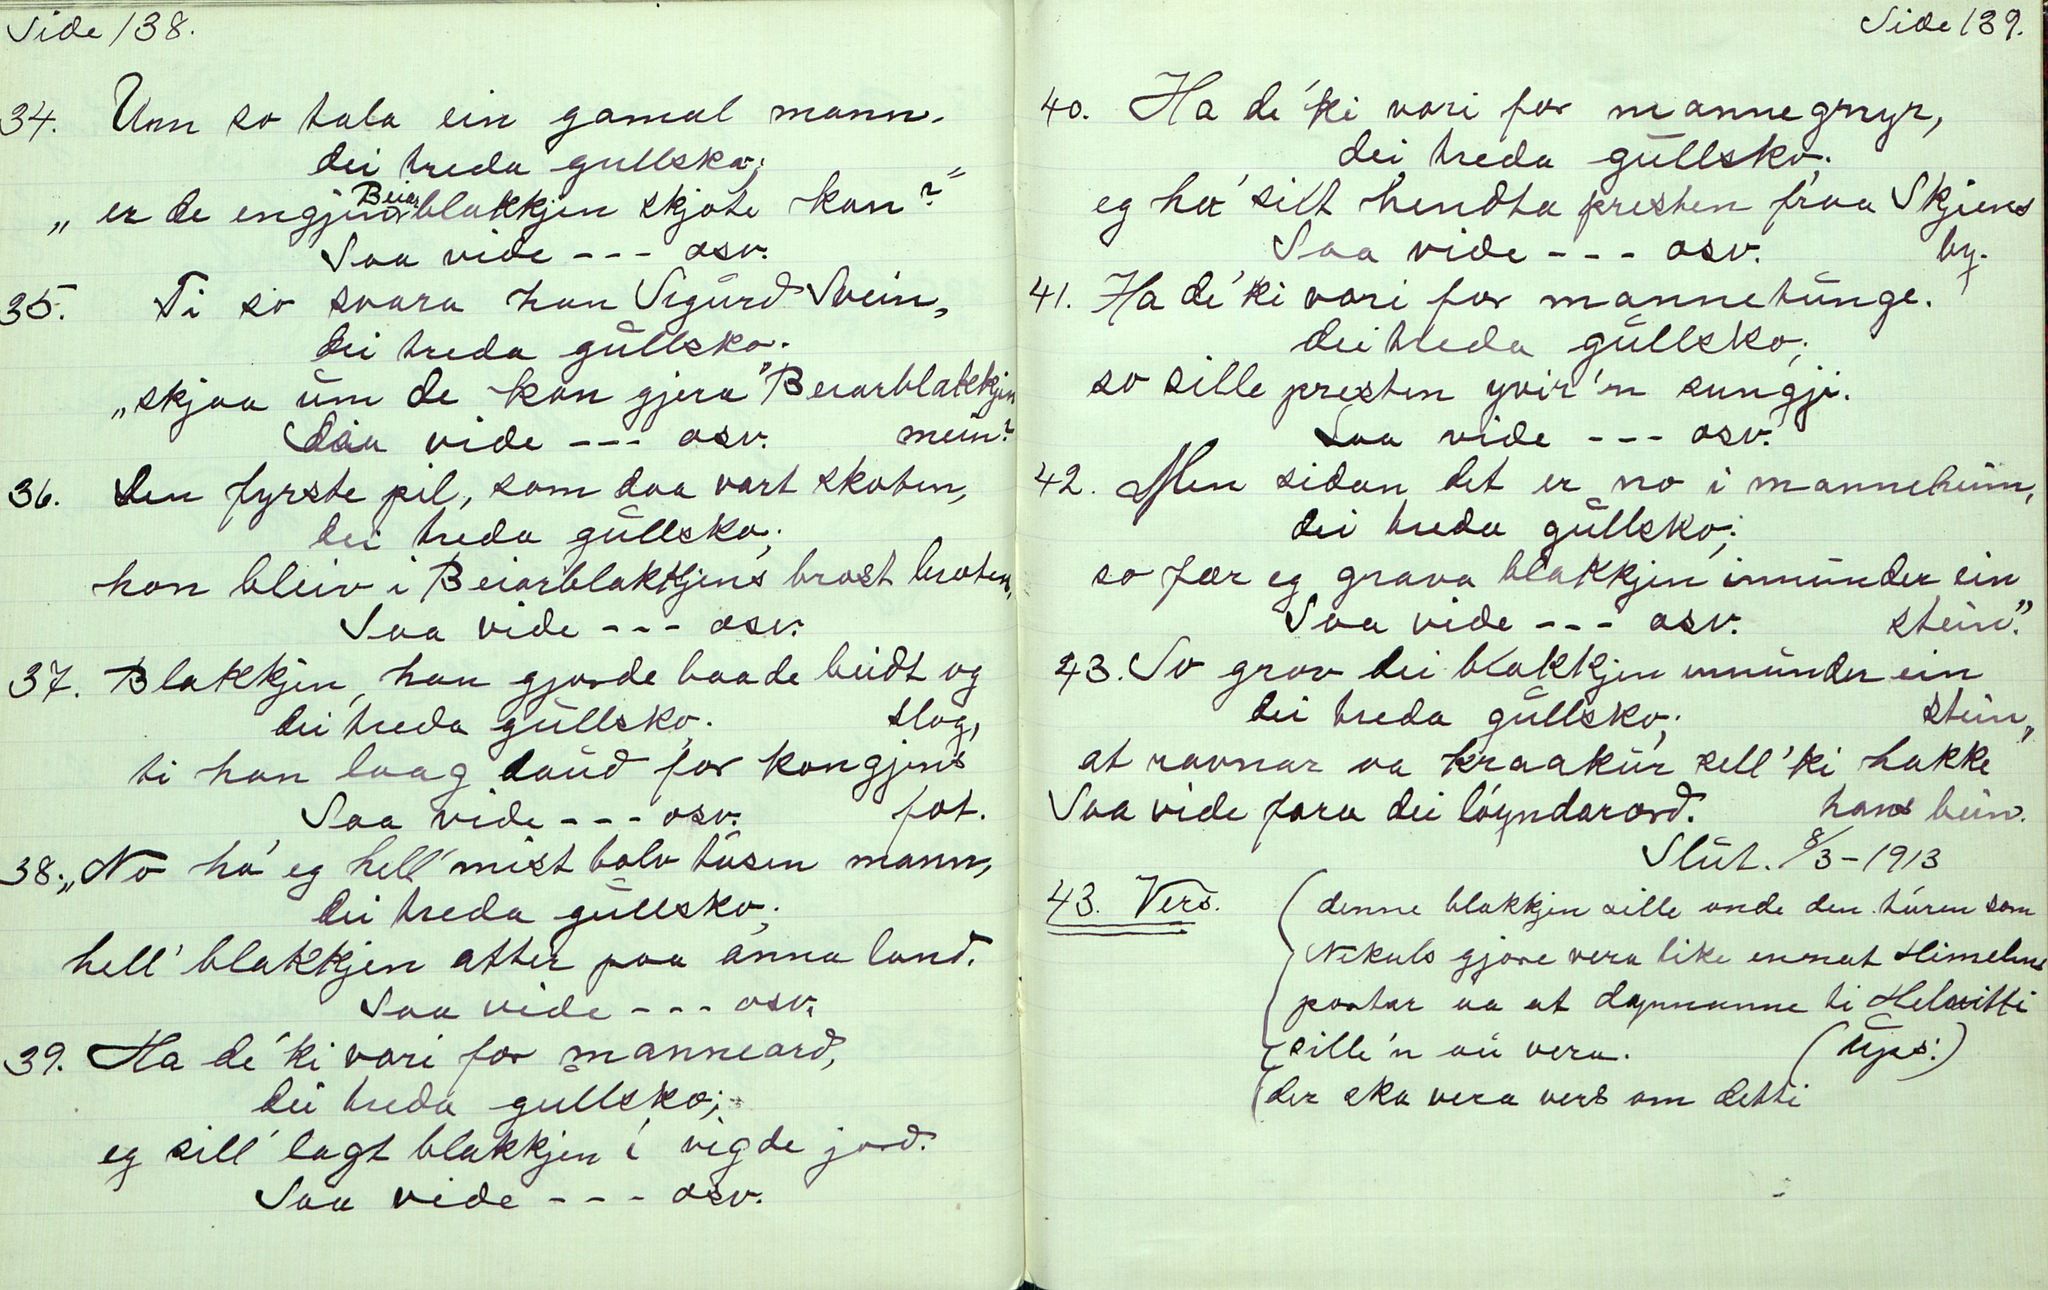 Side 138.
34. Unn so tala ein gamal mann.
dei treda gullsko;
„er de engjin Beiarblakkjen skjote kan?"
Saa vide --- osv.
35. Ti so svara han Sigurd Svein,
dei treda gullsko.
„skjaa um de kan gjera" Beiarblakkjen
mein?
Saa vide --- osv.
36. Den fyrste pil, som daa vart skoten,
dei treda gullsko;
han bleiv i Beiarblakkjens brost broten,
Saa vide --- osv.
37. Blakkjen, han gjorde baade beidt og
slog,
dei treda gullsko.
ti han laag daud for kongjens
fot.
Saa vide --- osv.
38. „No ha' eg hell' mist tolv tusen mann,
dei treda gullsko;
hell' blakkjen atter paa anna land.
Saa vide --- osv.
39. Ha de' ki vori for manneord,
dei treda gullsko;
eg sill' lagt blakkjen i vigde jord.
Saa vide --- osv.
Side 139.
40. Ha de' ki vori for mannegnyr,
dei treda gullsko.
eg ha' silt hendta presten fraa Skjiens
by.
Saa vide --- osv.
41. Ha de' ki vori for mannetunge.
dei treda gullsko;
so sille presten yvir'n sungji.
Saa vide --- osv.
42. Men sidan det er no i manneheim,
dei treda gullsko;
so fær eg grava blakkjen innunder ein
stein".
Saa vide --- osv.
43. So grov dei blakkjen innunder ein
stein,
dei treda gullsko;
at ravnar va kraakur sell' ki hakke
hans bein.
Saa vide fara dei löyndarord.
Slut. 8/3-1913
43. Vers. (denne blakkjen sille unde den turen som
Nikuls gjore vera like ennat Himelens
portar va at dynnanne ti Helvitti
sille'n au vera. (Ups!)
(der ska vera vers om detti